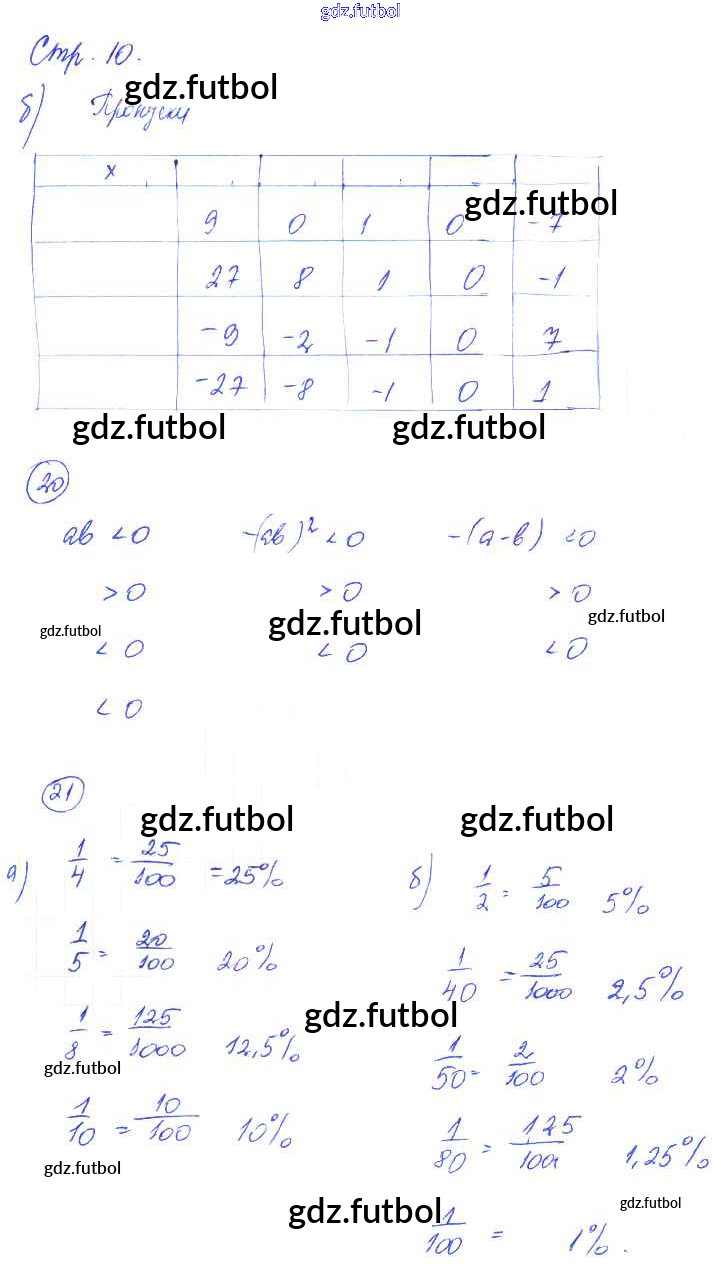 gdz.futbol
Стр. 10.
gdz.futbol
б) Пропуски
x
gdz.futbol
9 0 1 0 -7
27 8 1 0 -1
-9 -2 -1 0 7
-27 -8 -1 0 1
gdz.futbol gdz.futbol
20
ab <0 -(ab)² <0 -(a-b) <0
>0 >0 >0
gdz.futbol gdz.futbol gdz.futbol
<0 <0 <0
<0
21
gdz.futbol gdz.futbol
а) 1/4 = 25/100 = 25% б) 1/2 = 5/100 5%
1/5 = 20/100 20% 1/40 = 25/1000 2,5%
gdz.futbol
1/8 = 125/1000 12,5% 1/50 = 2/100 2%
gdz.futbol
1/10 = 10/100 10% 1/80 = 1,25/100 1,25%
gdz.futbol
gdz.futbol gdz.futbol
1/100 = 1%.